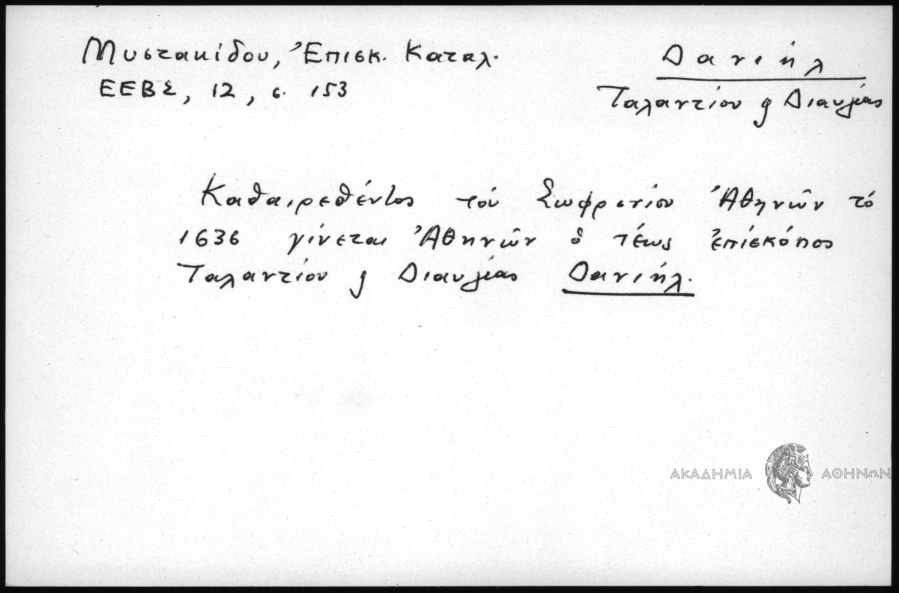 Μυστακίδου, Ἐπισκ. Καταλ.
ΕΕΒΣ, 12, σ. 153
Δανιήλ
Ταλαντίου ϗ Διαυλίας
Καθαιρεθέντος τοῦ Σωφρονίου Ἀθηνῶν τὸ
1636 γίνεται Ἀθηνῶν ὁ τέως ἐπίσκοπος
Ταλαντίου ϗ Διαυλίας Δανιήλ.
ΑΚΑΔΗΜΙΑ ΑΘΗΝΩΝ